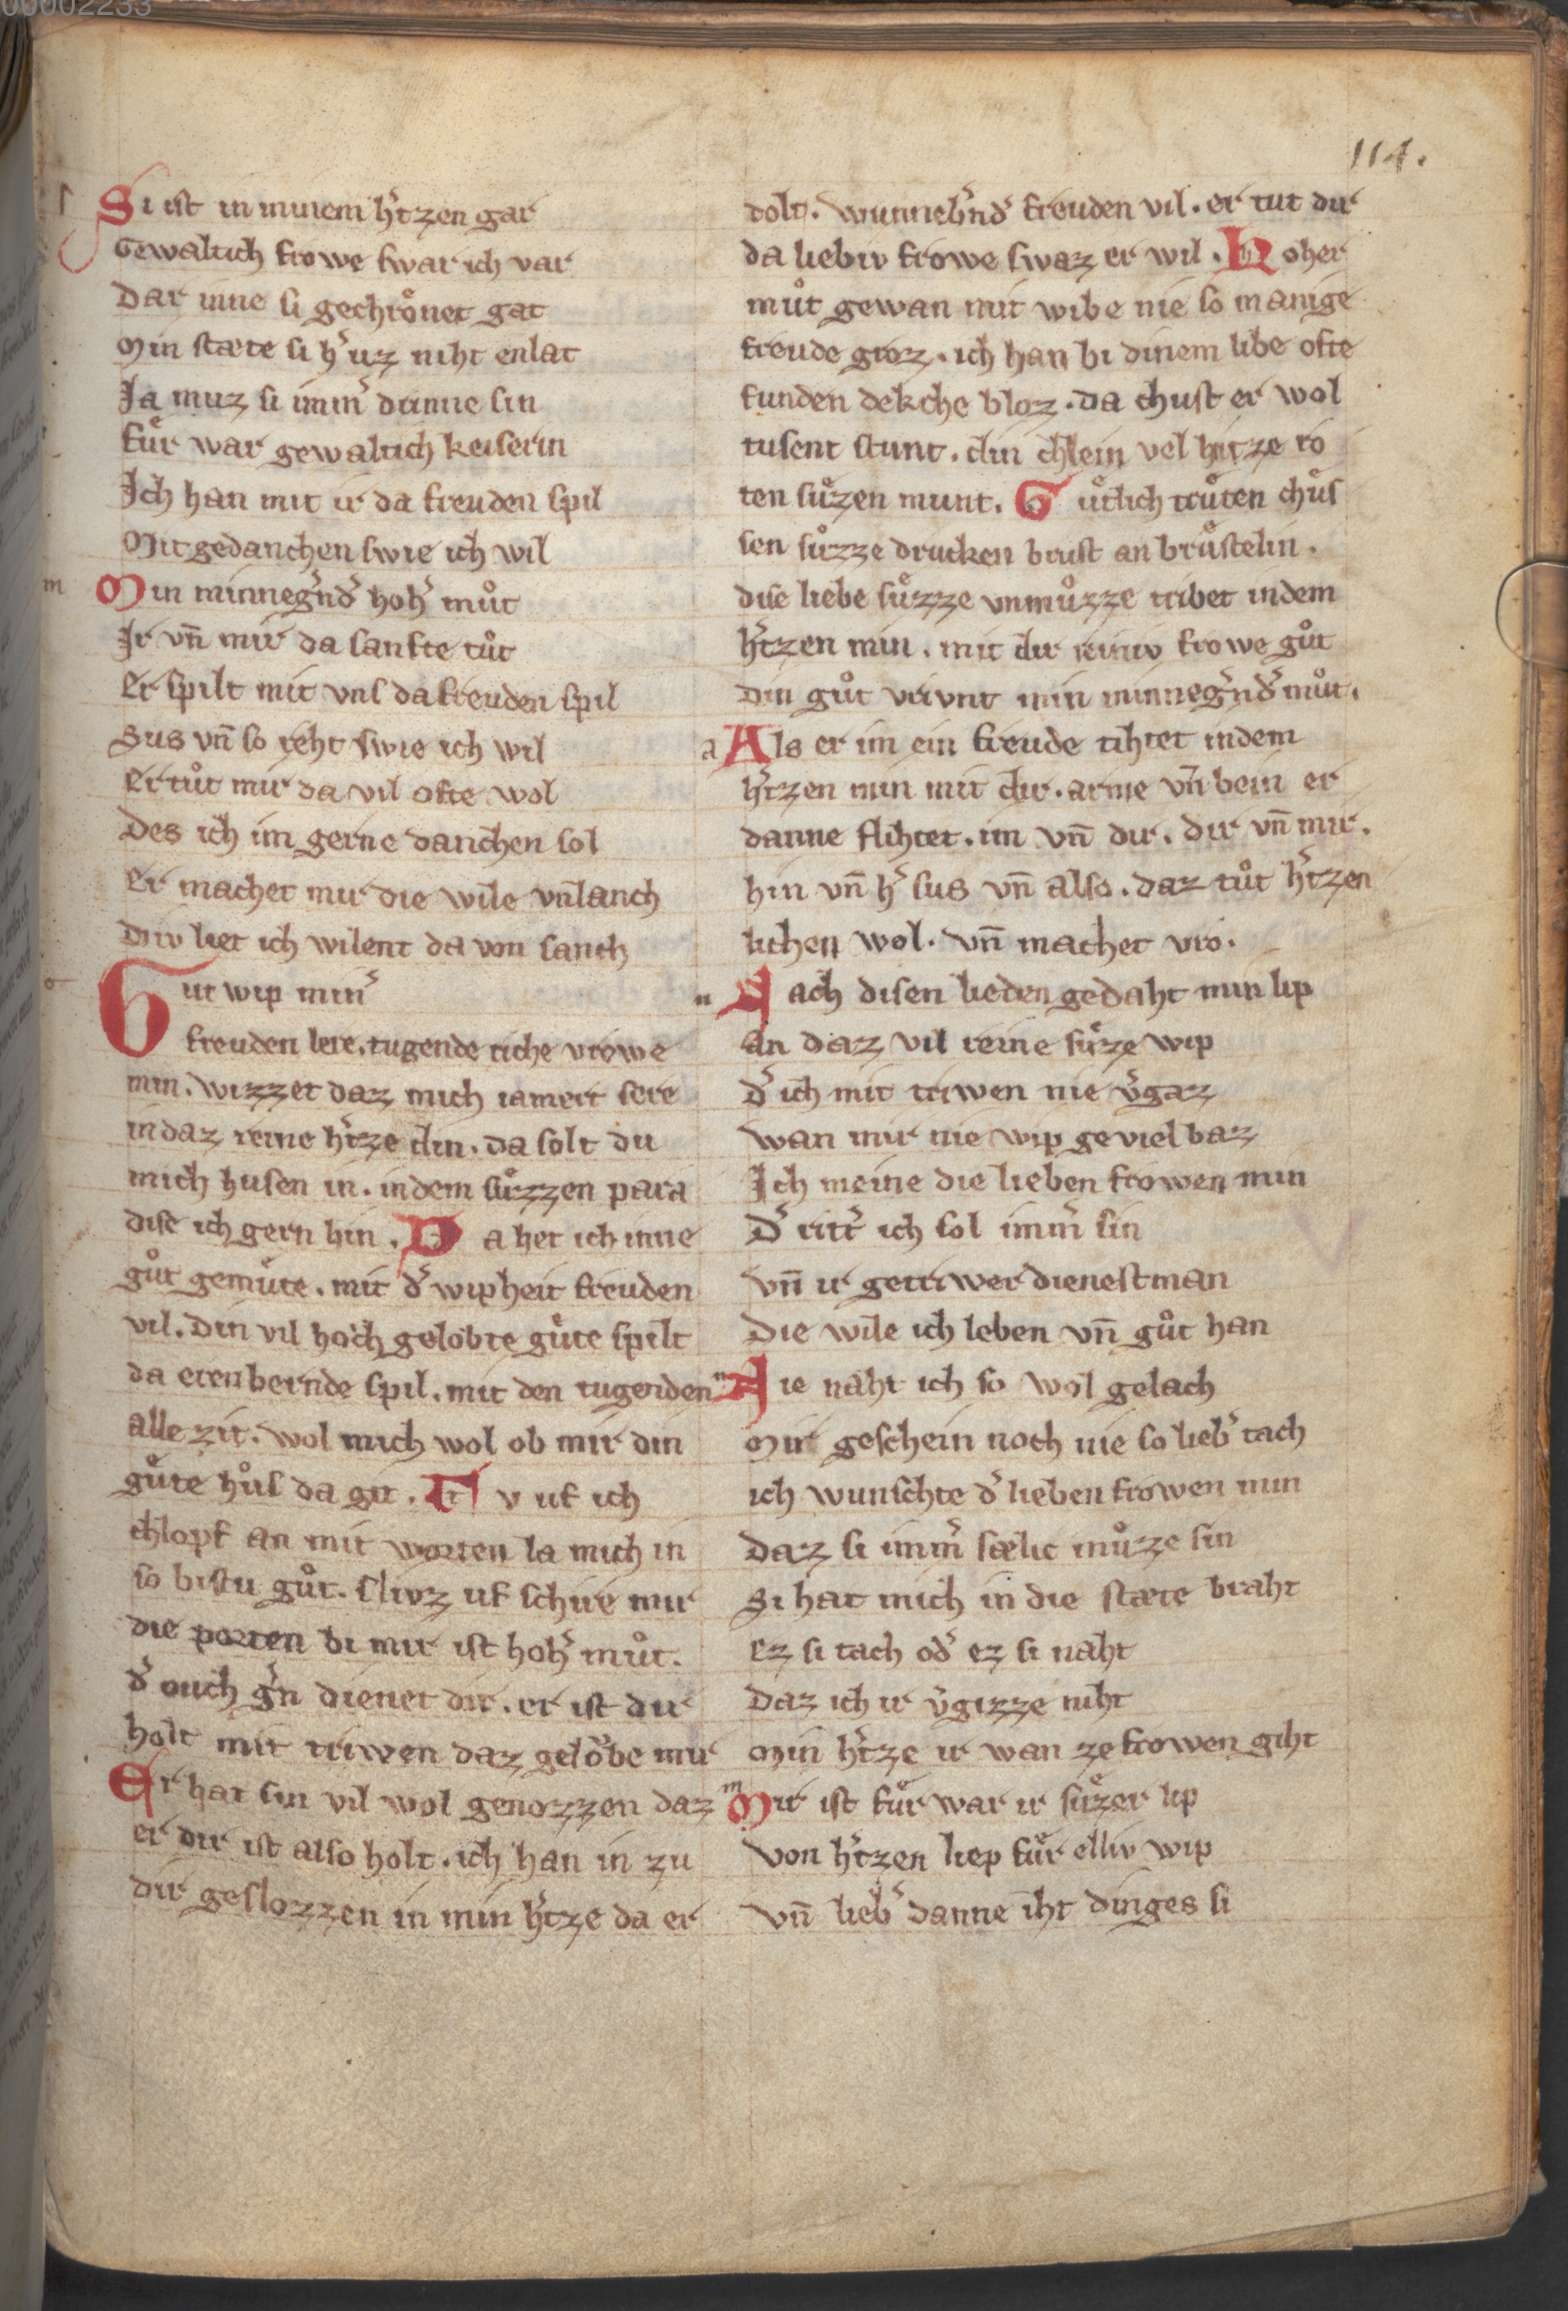 00002233
114.
Si ist in minem h̾tzen gar
Gewaltich frowe swar ich var
Dar inne si gechrͦnet gat
Min stæte si h̾ uz niht enlat
Ja muz si imm̾ dinne sin
fuͤr war gewaltich keiserin
Ich han mit ir da freuden spil
Mit gedanchen swie ich wil
m Min minneg̾nd̾ hoh̾ muͦt
Ir vn̄ mir da sanfte tuͦt
Er spilt mit vns da freuden spil
Sus vn̄ so reht swie ich wil
Er tuͦt mir da vil ofte wol
Des ich im gerne danchen sol
Er machet mir die wile vnlanch
Div liet ich wilent da von sanch
Gut wip min̾
freuden lere. tugende riche vrowe
min. wizzet daz mich iamert sere
in daz reine h̾tze din. da solt du
mich husen in. in dem suͤzzen para
dise ich gern bin. Da het ich inne
guͦt gemuͤte. mit d̾ wipheit freuden
vil. Din vil hoch gelobte guͤte spilt
da erenbernde spil. mit den tugenden
alle zit. wol mich wol ob mir din
guͤte huͦs da git. Tv uf ich
chlopf an mit worten la mich in
so bistu guͦt. sliuz uf schire mir
die porten bi mir ist hoh̾ muͦt.
d̾ ouch g̾n dienet dir. er ist dir
holt mit triwen daz geloͮbe mir
Er hat sin vil wol genozzen daz
er dir ist also holt. ich han in zu
dir geslozzen in min h̾tze da er
dolt. wunneb̾nd̾ freuden vil. er tut dir
da liebiv frowe swaz er wil. Hoher
muͦt gewan mit wibe nie so manige
freude groz. ich han bi dinem libe ofte
funden dekche bloz. da chust er wol
tusent stunt. din chlein vel hitze ro
ten suͤzen munt. Guͤtlich truͤten chuͤs
sen suͤzze drucken brust an bruͤstelin.
dise liebe suͤzze vnmuͦzze tribet in dem
h̾tzen min. mit dir reiniv frowe guͦt
din guͦt vrivnt min minneg̾nd̾ muͦt.
a Als er im ein freude tihtet in dem
h̾tzen min mit dir. arme vn̄ bein er
danne flihtet. im vn̄ dir. dir vn̄ mir.
hin vn̄ h̾ sus vn̄ also. daz tuͦt h̾tzen
lichen wol. vn̄ machet vro.
n Nach disen lieden gedaht min lip
An daz vil reine suͤze wip
d̾ ich mit triwen nie v̾gaz
wan mir nie wip geviel baz
Ich meine die lieben frowen min
D̾ ritt̾ ich sol imm̾ sin
vn̄ ir getriwer dienestman
Die wile ich leben vn̄ guͦt han
n Nie naht ich so wol gelach
Mir geschein noch nie so lieb̾ tach
ich wunschte d̾ lieben frowen min
Daz si imm̾ sælic muͤzze sin
Si hat mich in die stæte braht
Ez si tach od̾ ez si naht
Daz ich ir v̾gizze niht
Min h̾tze ir wan ze frowen giht
m Mir ist fuͤr war ir suͤzer lip
Von h̾tzen liep fuͤr elliv wip
vn̄ lieb̾ danne iht dinges si